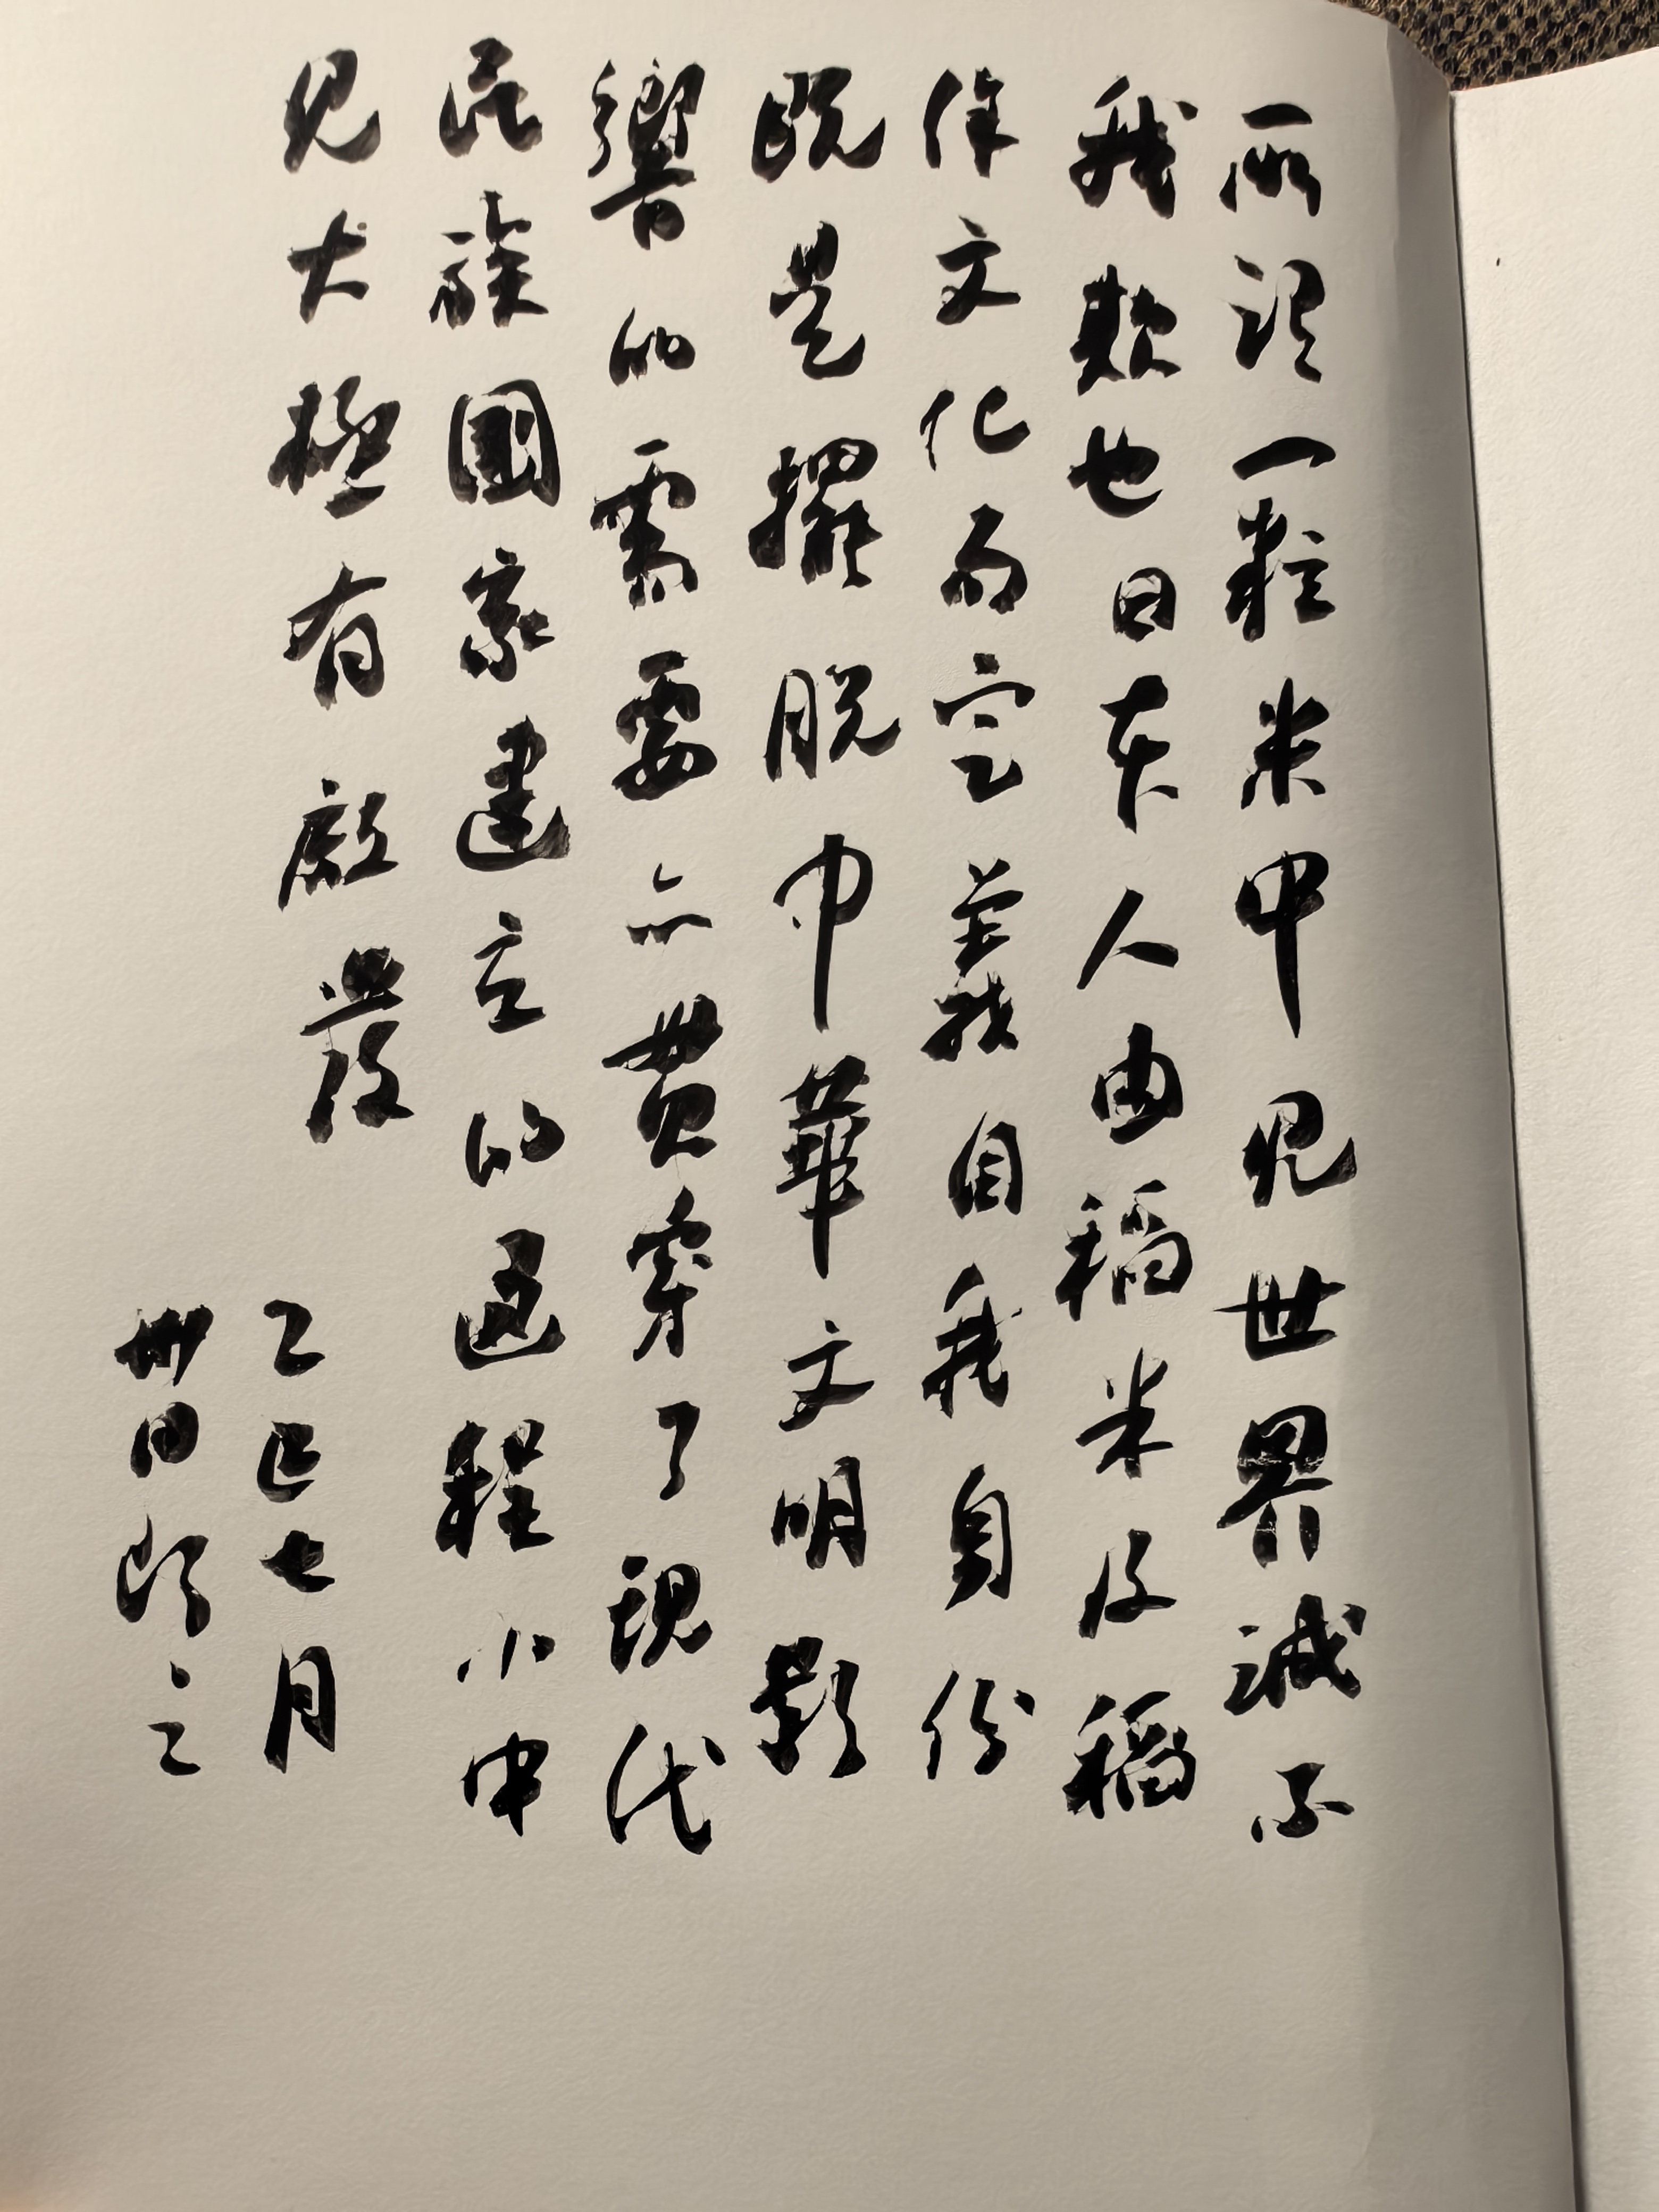 所謂一粒米中見世界誠不
我欺也日本人由稻米及稻
作文化而定義自我身份
既是擺脫中華文明影
響的需要亦貫穿了現代
民族國家建立的過程小中
見大極有啟發
乙巳七月
卅日